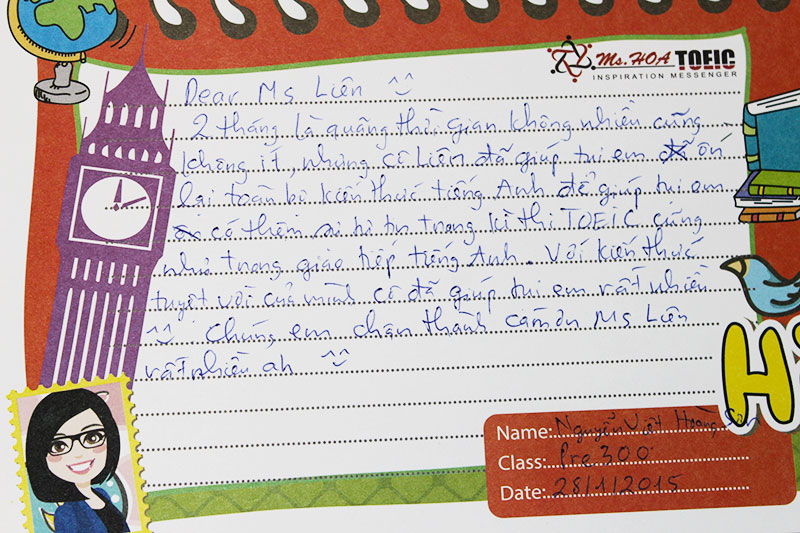 Ms. HOA TOEIC
INSPIRATION MESSENGER
Dear Ms Liên ^^
2 tháng là quãng thời gian không nhiều cũng
không ít, nhưng cô Liên đã giúp tui em ôn
lại toàn bộ kiến thức tiếng Anh để giúp tui em
có thêm sự tự tin trong kì thi TOEIC cũng
như trong giao tiếp tiếng Anh. Với kiến thức
tuyệt vời của mình cô đã giúp tui em rất nhiều
^^ Chúng em chân thành cảm ơn Ms Liên
rất nhiều ah ^^
Name: Nguyễn Việt Hoàng Sơn
Class: Pre 300
Date: 28/1/2015